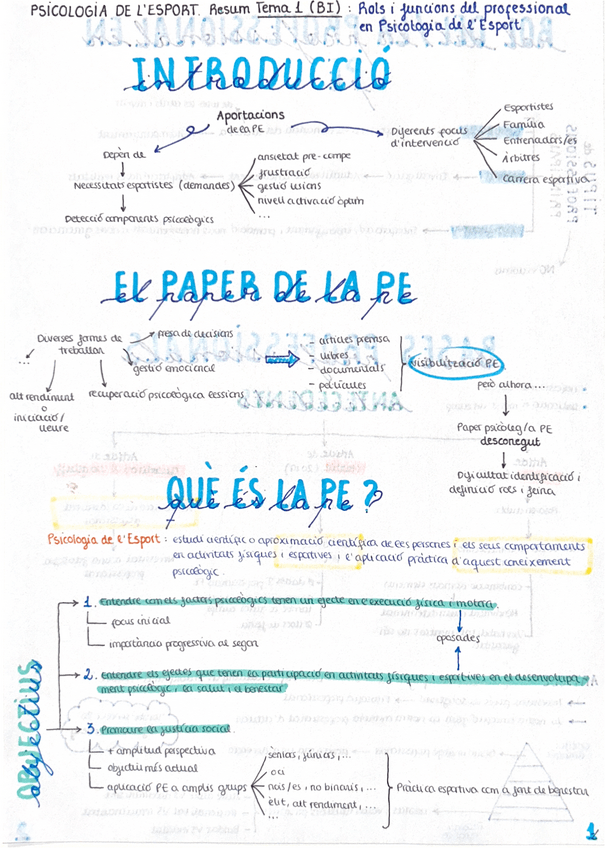 PSICOLOGIA DE L'ESPORT. Resum Tema 1 (BI) : Rols i funcions del professional
en Psicologia de l'Esport
INTRODUCCIÓ
introducció
Aportacions
de la PE
Depèn de
Necessitats esportistes (demandes)
Detecció components psicològics
ansietat pre-compe
frustració
gestió lesions
nivell activació òptim
...
Diferents focus
d'intervenció
Esportistes
Família
Entrenadors/es
Àrbitres
Carrera esportiva
EL PAPER DE LA PE
el paper de la pe
Diverses formes de
treballar
...
alt rendiment
o
iniciació/
lleure
presa de decisions
gestió emocional
recuperació psicològica lesions
- articles premsa
- llibres
- documentals
- pel·lícules
visibilització PE
però alhora ...
Paper psicòleg/a PE
desconegut
Dificultat identificació i
definició rols i feina
QUÈ ÉS LA PE?
què és la pe?
Psicologia de l'Esport: estudi científic o aproximació científica de les persones i els seus comportaments
en activitats físiques i esportives i l'aplicació pràctica d'aquest coneixement
psicològic.
OBJECTIUS
objectius
1. Entendre com els factors psicològics tenen un efecte en l'execució física i motora.
focus inicial
importància progressiva al segon
oposades
2. Entendre els efectes que tenen la participació en activitats físiques i esportives en el desenvolupa-
ment psicològic i la salut i el benestar
3. Promoure la justícia social.
+ amplitud perspectiva
objectiu més actual
aplicació PE a amplis grups
sèniors, júniors, ...
oci
nois/es, no binaris, ...
èlit, alt rendiment, ...
...
Pràctica esportiva com a font de benestar
1